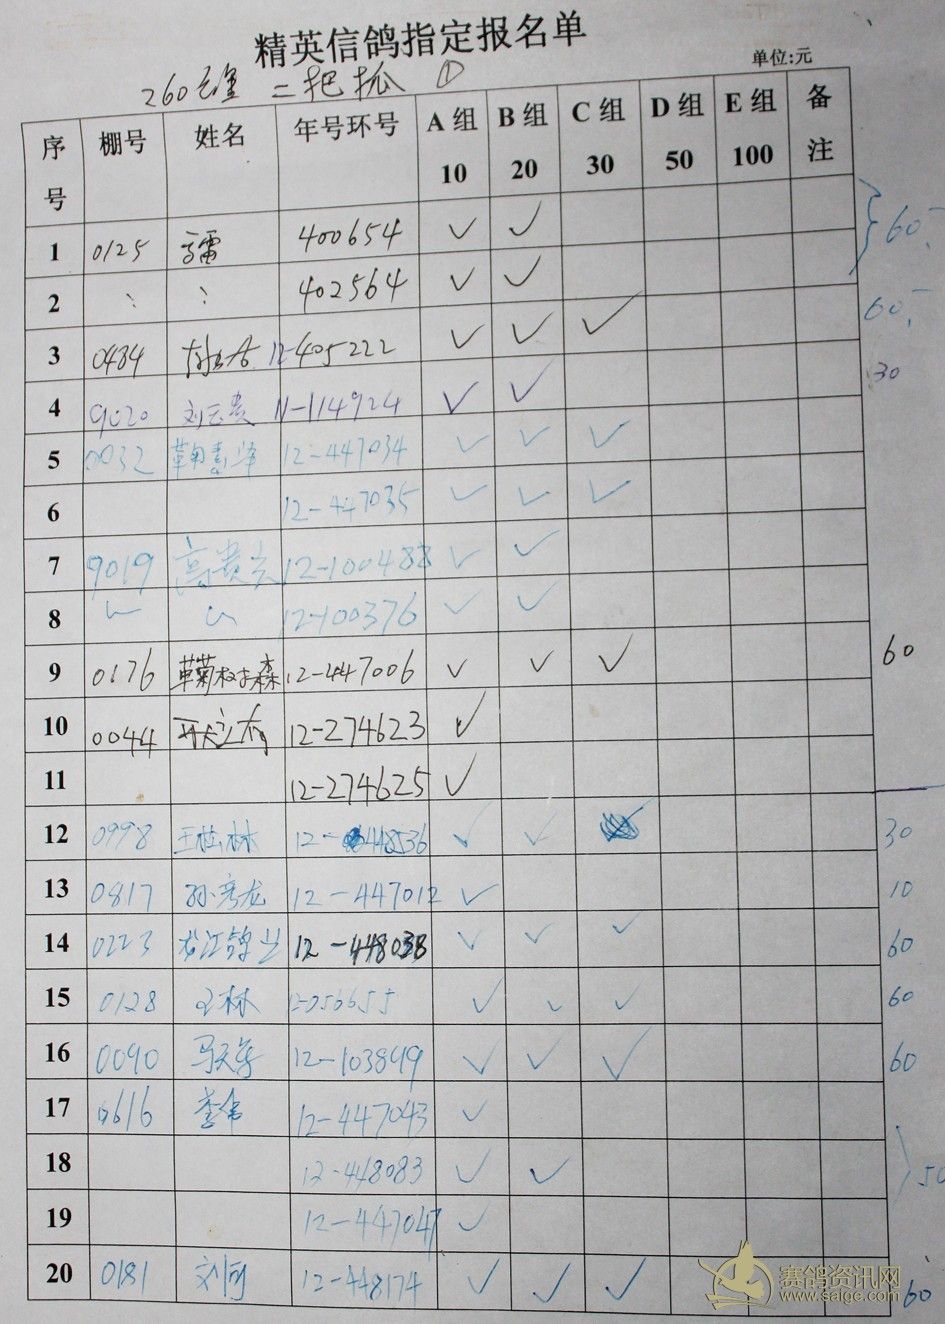 精英信鸽指定报名单
260 二把抓 ①
单位:元
序号 棚号 姓名 年号环号 A组10 B组20 C组30 D组50 E组100 备注
1 0125 400654 ✓ ✓
60
2 402564 ✓ ✓
3 0484 12-405222 ✓ ✓ ✓ 60
4 9020 刘云贵 11-114924 ✓ ✓ 30
5 0032 鞠 12-447034 ✓ ✓ ✓
6 12-447035 ✓ ✓ ✓
7 9019 高贵 12-100488 ✓ ✓
8 12-100376 ✓ ✓
9 0176 鞠树森 12-447006 ✓ ✓ ✓ 60
10 0044 12-274623 ✓
11 12-274625 ✓
12 0998 王桂林 12-448536 ✓ ✓ 30
13 0817 孙彦龙 12-447012 ✓ 10
14 0223 龙江鸽业 12-448038 ✓ ✓ ✓ 60
15 0128 王林 12-056655 ✓ ✓ ✓ 60
16 0090 马天 12-103849 ✓ ✓ ✓ 60
17 0616 李 12-447043 ✓
18 12-448083 ✓ ✓ 50
19 12-447047 ✓
20 0181 刘 12-448174 ✓ ✓ ✓ 60
赛鸽资讯网
www.saige.com